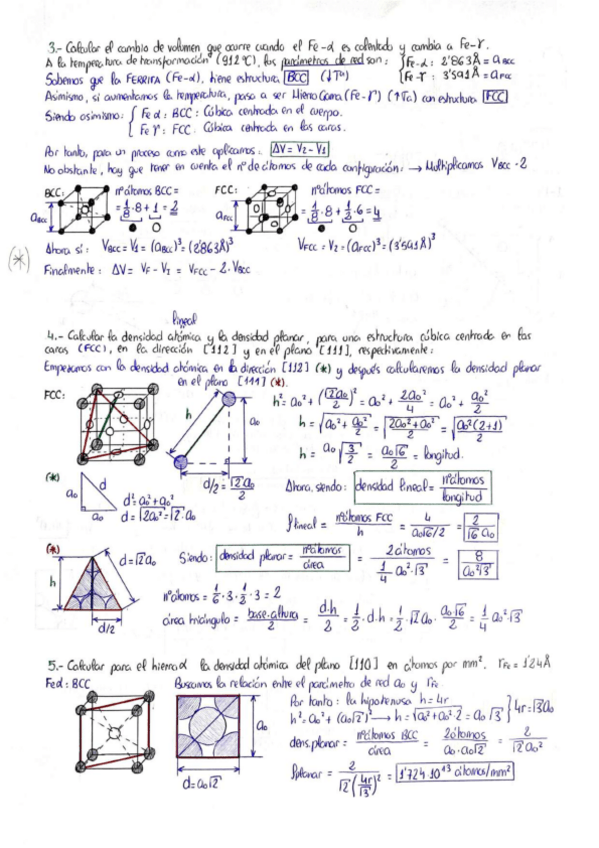 3.- Calcular el cambio de volumen que ocurre cuando el Fe-α es calentado y cambia a Fe-γ.
A la temperatura de transformación (912ºC), los parámetros de red son: { Fe-α: 2'863Å = aBCC
Fe-γ: 3'591Å = aFCC
Sabemos que la FERRITA (Fe-α), tiene estructura BCC (↓Tª)
Asimismo, si aumentamos la temperatura, pasa a ser Hierro Gamma (Fe-γ) (↑Tª) con estructura FCC
Siendo asimismo: { Fe α: BCC: Cúbica centrada en el cuerpo.
Fe γ: FCC: Cúbica centrada en las caras.
Por tanto, para un proceso como este aplicamos: ΔV = V2 - V1
No obstante, hay que tener en cuenta el nº de átomos de cada configuración: → Multiplicamos VBCC · 2
BCC: nº átomos BCC = FCC: nº átomos FCC =
aBCC = 1/8 · 8 + 1 = 2 aFCC = 1/8 · 8 + 1/2 · 6 = 4
(*) Ahora si: VBCC = V1 = (aBCC)³ = (2'863Å)³ VFCC = V2 = (aFCC)³ = (3'591Å)³
Finalmente: ΔV = VF - V1 = VFCC - 2·VBCC
lineal
4.- Calcular la densidad atómica y la densidad planar, para una estructura cúbica centrada en las
caras (FCC), en la dirección [112] y en el plano [111], respectivamente:
Empezamos con la densidad atómica en la dirección [112] (*) y después calcularemos la densidad planar
en el plano [111] (*).
FCC: h a0 h² = a0² + (√2a0/2)² = a0² + 2a0²/4 = a0² + a0²/2
h = √(a0² + a0²/2) = √((2a0² + a0²)/2) = √(a0²(2+1)/2)
h = a0 √(3/2) = a0√6/2 = longitud.
(*) a0 d a0 d/2 = √2 a0/2
d² = a0² + a0²
d = √(2a0²) = √2 · a0
Ahora, siendo: densidad lineal = nº átomos/longitud
ρlineal = nº átomos FCC/h = 4/(a0√6/2) = 2/(√6 a0)
(*) h d = √2a0 d/2
Siendo: densidad planar = nº átomos/área = 2 átomos/(1/4 a0²·√3) = 8/(a0²√3)
nº átomos = 1/6 · 3 + 1/2 · 3 = 2
área triángulo = base·altura/2 = d·h/2 = 1/2 · d·h = 1/2 · √2 a0 · a0√6/2 = 1/4 a0²√3
5.- Calcular para el hierro α la densidad atómica del plano [110] en átomos por mm². rFe = 1'24Å
Fe α: BCC Buscamos la relación entre el parámetro de red a0 y rFe.
a0 d = a0√2
Por tanto: la hipotenusa h = 4r
h² = a0² + (a0√2)² → h = √(a0² + a0²·2) = a0√3 } 4r = √3a0
dens. planar = nº átomos BCC/área = 2 átomos/(a0·a0√2) = 2/(√2 a0²)
ρplanar = 2/(√2 (4r/√3)²) = 1'724·10¹³ átomos/mm²